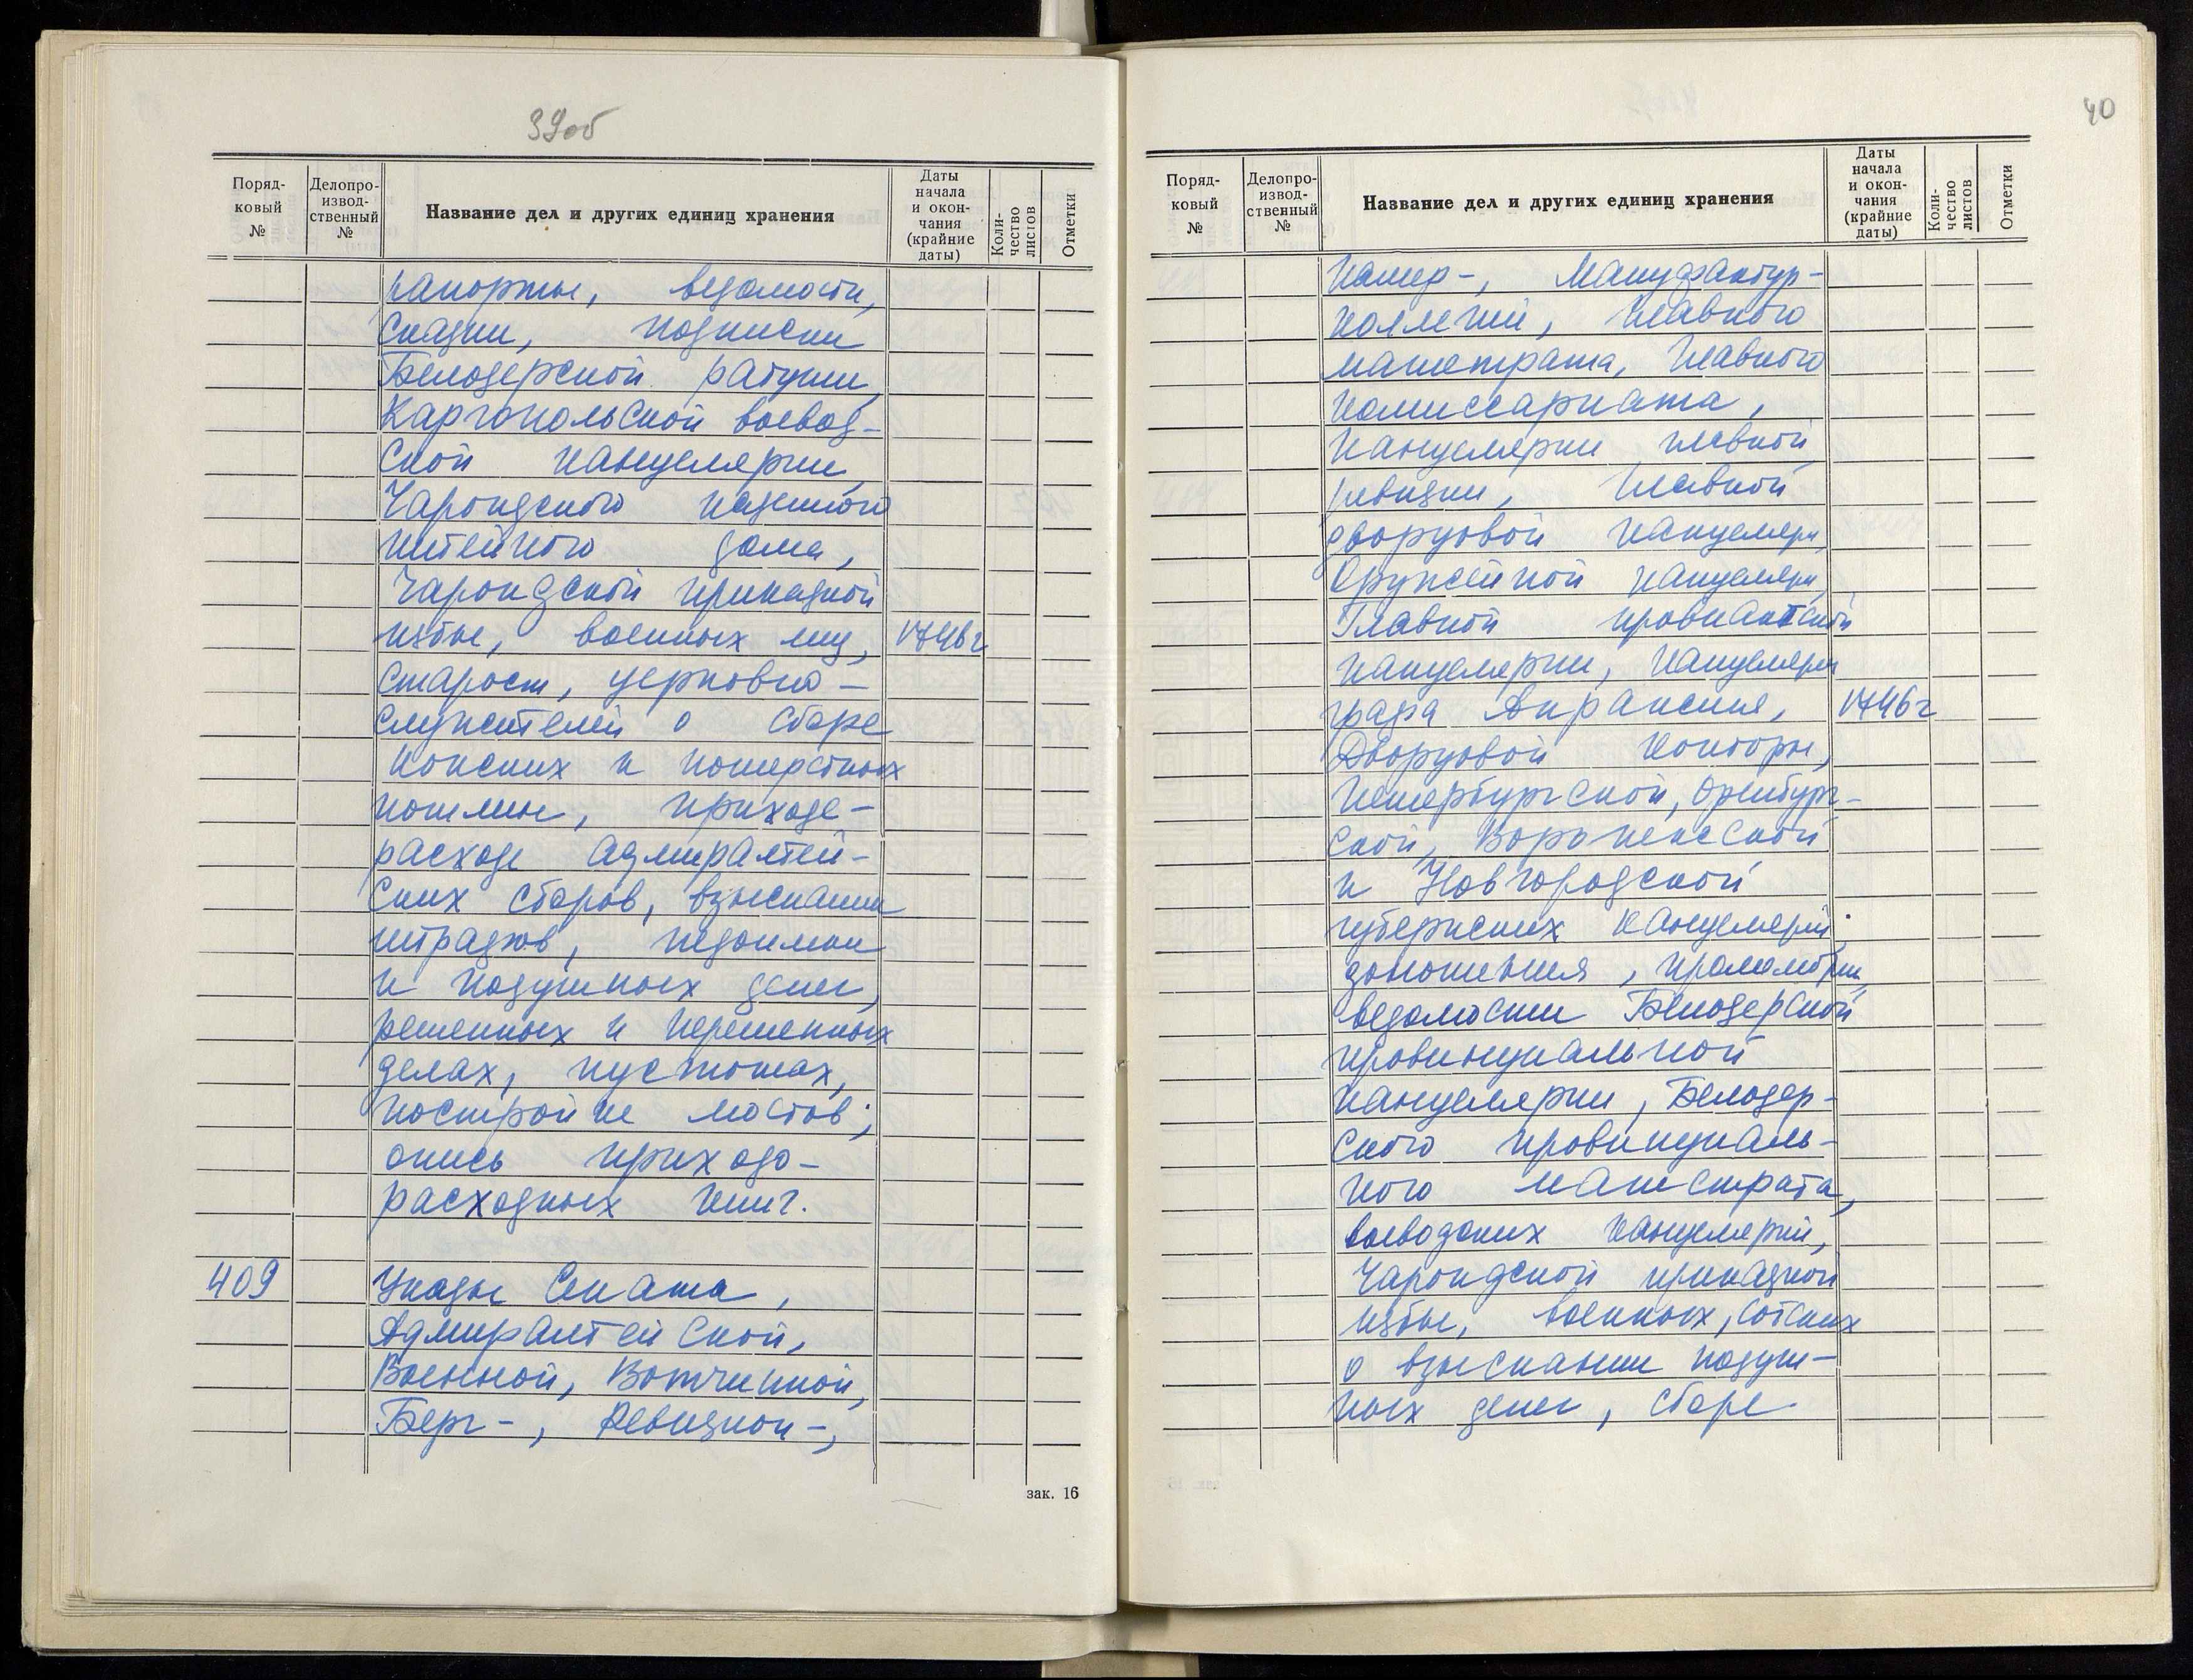 39об
Поряд-
ковый
№
Делопро-
извод-
ственный
№
Название дел и других единиц хранения
Даты
начала
и окон-
чания
(крайние
даты)
Коли-
чество
листов
Отметки
рапорты, ведомости,
сказки, подписки
Белозерской ратуши,
Каргопольской воевод-
ской канцелярии,
Чарондского казенного
питейного дома,
Чарондской приказной
избы, военных лиц, 1746г
старост, церковно-
служителей о сборе
конских и пошерстных
пошлин, приходе-
расходе адмиралтей-
ских сборов, взыскании
штрафов, недоимки
и подушных денег,
решенных и нерешенных
делах, пустошах,
постройке мостов;
опись приходо-
расходных книг.
409 Указы Сената,
Адмиралтейской,
Военной, Вотчинной,
Берг-, Ревизион-,
зак. 16
40
Поряд-
ковый
№
Делопро-
извод-
ственный
№
Название дел и других единиц хранения
Даты
начала
и окон-
чания
(крайние
даты)
Коли-
чество
листов
Отметки
Камер-, Мануфактур-
коллегий, Главного
магистрата, Главного
комиссариата,
Канцелярии главной
ревизии, Главной
дворцовой канцеляри,
Оружейной канцеляри,
Главной провиантской
канцелярии, Канцеляри
графа Апраксина, 1746г
Дворцовой конторы,
Петербургской, Оренбург-
ской, Воронежской
и Новгородской
губернских канцелярий;
доношения, промемории,
ведомости Белозерской
провинциальной
канцелярии, Белозер-
ского провинциаль-
ного магистрата,
воеводских канцелярий,
Чарондской приказной
избы, военных, сотских
о взыскании подуш-
ных денег, сборе